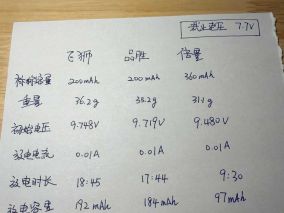 截止电压 7.7V
飞狮 品胜 倍量
标称容量 200mAh 200mAh 360mAh
重量 36.2g 35.2g 31.1g
初始电压 9.748V 9.719V 9.480V
放电电流 0.01A 0.01A 0.01A
放电时长 18:45 17:44 9:30
放电容量 192mAh 184mAh 97mAh